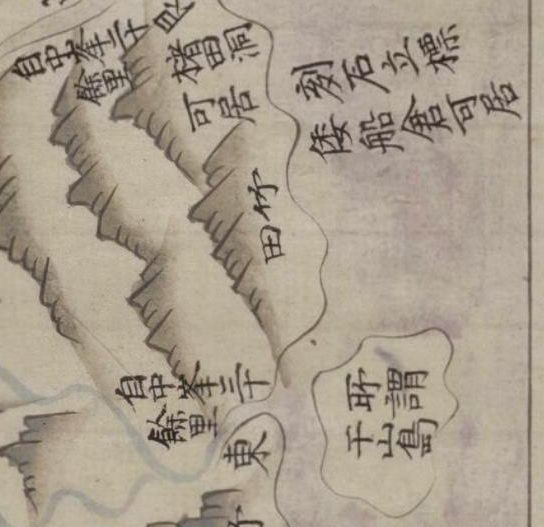 自中峯三十
餘里
楮田洞
可居
刻石立標
倭船倉可居
竹田
自中峯三十
餘里
東
所謂
于山島